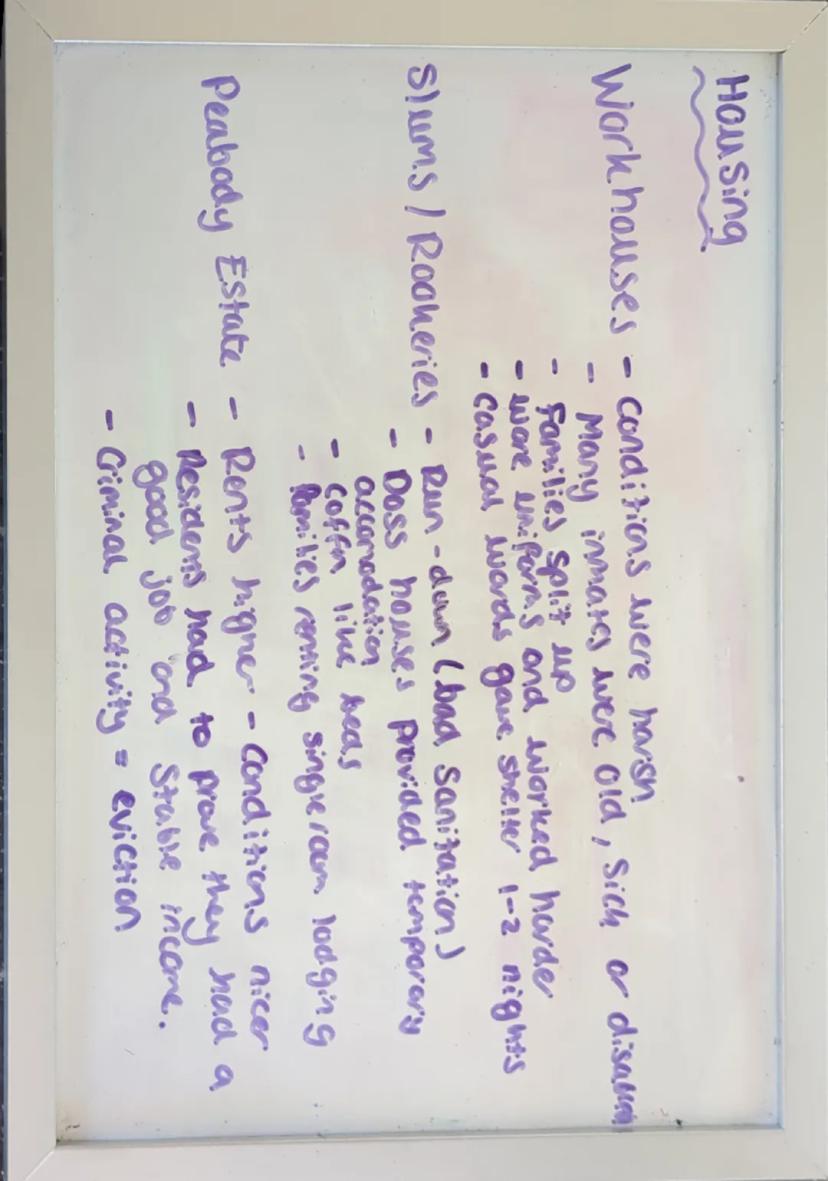 Housing
Workhouses - Conditions were harsh
- Many inmates were old, sick or disabled
- Families split up
- wore uniforms and worked harder
- casual wards gave shelter 1-2 nights
Slums / Rookeries - Run-down (bad sanitation)
- Doss houses provided temporary
accomodation
- coffin like beds
- Families renting single room lodging
Peabody Estate - Rents higher - Conditions nicer
- Residents had to prove they had a
good job and stable income.
- Criminal activity = eviction